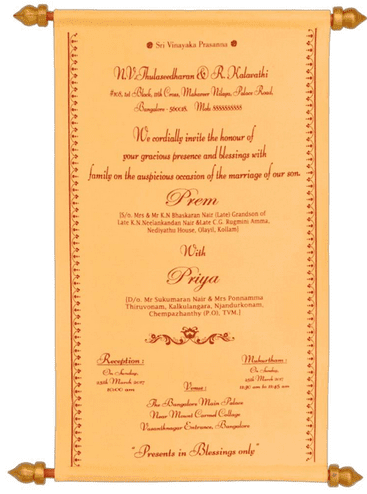 Sri Vinayaka Prasanna
N.V. Thulaseedharan & R. Kalavathi
#108, 1st Block, 11th Cross, Mahaveer Nilaya, Palace Road,
Bangalore - 560028, Mob: 8888888888
We cordially invite the honour of
your gracious presence and blessings with
family on the auspicious occasion of the marriage of our son.
Prem
[S/o. Mrs & Mr K.N Bhaskaran Nair (Late) Grandson of
Late K.N.Neelankandan Nair &Late C.G. Rugmini Amma,
Nediyathu House, Olayil, Kollam]
With
Priya
[D/o. Mr Sukumaran Nair & Mrs Ponnamma
Thiruvonam, Kalkulangara, Njandurkonam,
Chempazhanthy (P.O), TVM.]
Reception :
On Sunday,
25th March 2017
10:00 am
Muhurtham :
On Sunday,
25th March 2017
11.30 am to 11.45 am
Venue :
The Bangalore Main Palace
Near Mount Carmel College
Vasanthnagar Entrance, Bangalore
"Presents in Blessings only"